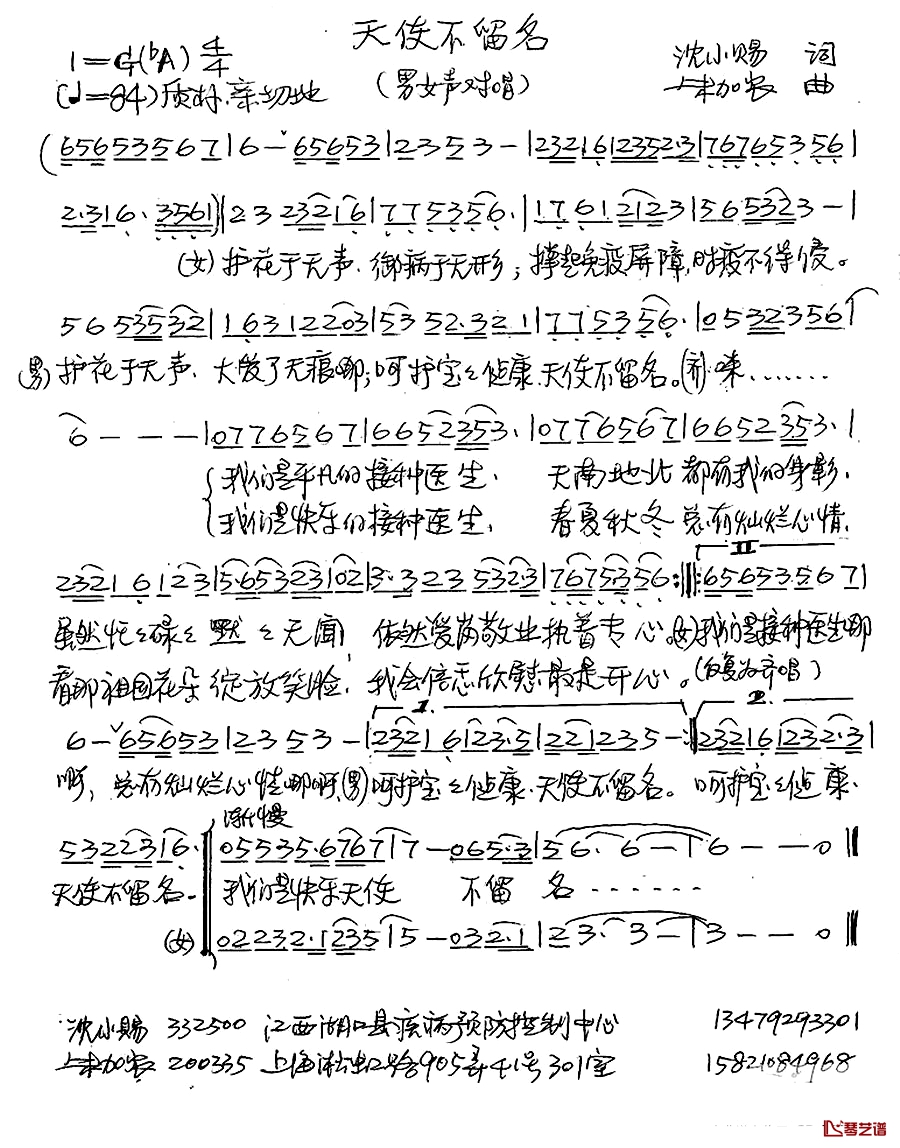 天使不留名
1=G(♭A) 4/4
沈小赐 词
(♩=84)质朴、亲切地
(男女声对唱)
朱加农 曲
(6 5 6 5 3 5 6 7 | 6 – ˅6 5 6 5 3 | 2 3 5 3 – | 2 3 2 1 6 1 2 3 5 2·3 | 7 6 7 6 5 3 5 6 |
2·3 1 6· 3 5 6 1) | 2 3 2 3 2 1 6 | 7 7 5 3 5 6· | 1 7 6 1 2 1 2 3 | 5 6 5 3 2 3 – |
(女)护花于无声、御病于无形；撑起免疫屏障,时疫不得侵。
5 6 5 3 5 3 2 | 1 6 3 1 2 2 0 3 | 5 3 5 2·3 2 1 | 7 7 5 3 5 6· | 0 5 3 2 3 5 6 |
(男)护花于无声、大爱了无痕哪；呵护宝宝健康、天使不留名。(齐)嗦.......
6 – – – | 0 7 7 6 5 6 7 | 6 6 5 2 3 5 3· | 0 7 7 6 5 6 7 | 6 6 5 2 3 5 3· |
我们是平凡的接种医生、 天南地北 都有我的身影,
我们是快乐的接种医生, 春夏秋冬 总有灿烂心情,
II
2 3 2 1 6 1 2 3 | 5·6 5 3 2 3 0 2 | 3·3 2 3 5 3 2·3 | 7 6 7 5 3 5 6 :‖: 6 5 6 5 3·5 6 7 |
虽然忙忙碌碌 默默无闻, 依然爱岗敬业执着专心。(女)我们是接种医生哪
看那祖国花朵 绽放笑脸, 我会倍感欣慰最是开心。(反复为齐唱)
1. 2.
6 – ˅6 5 6 5 3 | 2 3 5 3 – | 2 3 2 1 6 | 2 3·5 | 2 2 1 2 3 5 – :‖ 2 3 2 1 6 | 2 3 2·3 |
啊, 总有灿烂心情哪啊,(男)呵护宝宝健康、天使不留名。呵护宝宝健康、
渐慢
5 3 2 2 3 1 6· ‖ 0 5 5 3 5·6 7 6 7 | 7 – 0 6 5·3 | 5 6· 6 – | 6 – – 0 ‖
天使不留名。我们是快乐天使 不留 名......
(女) 0 2 2 3 2·1 2 3 5 | 5 – 0 3 2·1 | 2 3· 3 – | 3 – – 0 ‖
沈小赐 332500 江西湖口县疾病预防控制中心 13479293301
朱加农 200335 上海淞虹路905弄41号301室 15821084968
琴艺谱